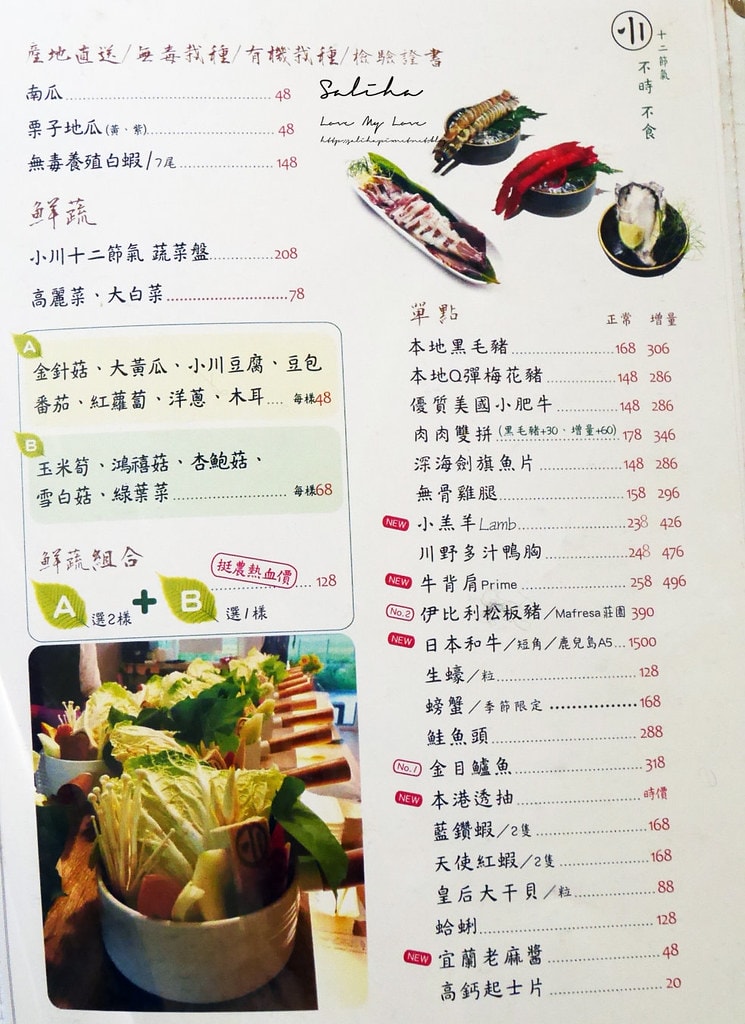 產地直送/無毒栽種/有機栽種/檢驗證書
南瓜 48
栗子地瓜(黃、紫) 48
無毒養殖白蝦/7尾 148
Saliha
Love My Love
小
十二節氣
不時 不食
鮮蔬
小川十二節氣 蔬菜盤 208
高麗菜、大白菜 78
A
金針菇、大黃瓜、小川豆腐、豆包
番茄、紅蘿蔔、洋蔥、木耳 每樣48
B
玉米筍、鴻禧菇、杏鮑菇、
雪白菇、綠葉菜 每樣68
鮮蔬組合
挺農熱血價 128
A 選2樣 + B 選1樣
單點 正常 增量
本地黑毛豬 168 306
本地Q彈梅花豬 148 286
優質美國小肥牛 148 286
肉肉雙拼(黑毛豬+30、增量+60) 178 346
深海劍旗魚片 148 286
無骨雞腿 158 296
NEW 小羔羊Lamb 238 426
川野多汁鴨胸 248 476
NEW 牛背肩Prime 258 496
No.2 伊比利松板豬/Mafresa莊園 390
NEW 日本和牛/短角/鹿兒島A5 1500
生蠔/粒 128
螃蟹/季節限定 168
鮭魚頭 288
No.1 金目鱸魚 318
NEW 本港透抽 時價
藍鑽蝦/2隻 168
天使紅蝦/2隻 168
皇后大干貝/粒 88
蛤蜊 128
NEW 宜蘭老麻醬 48
高鈣起士片 20